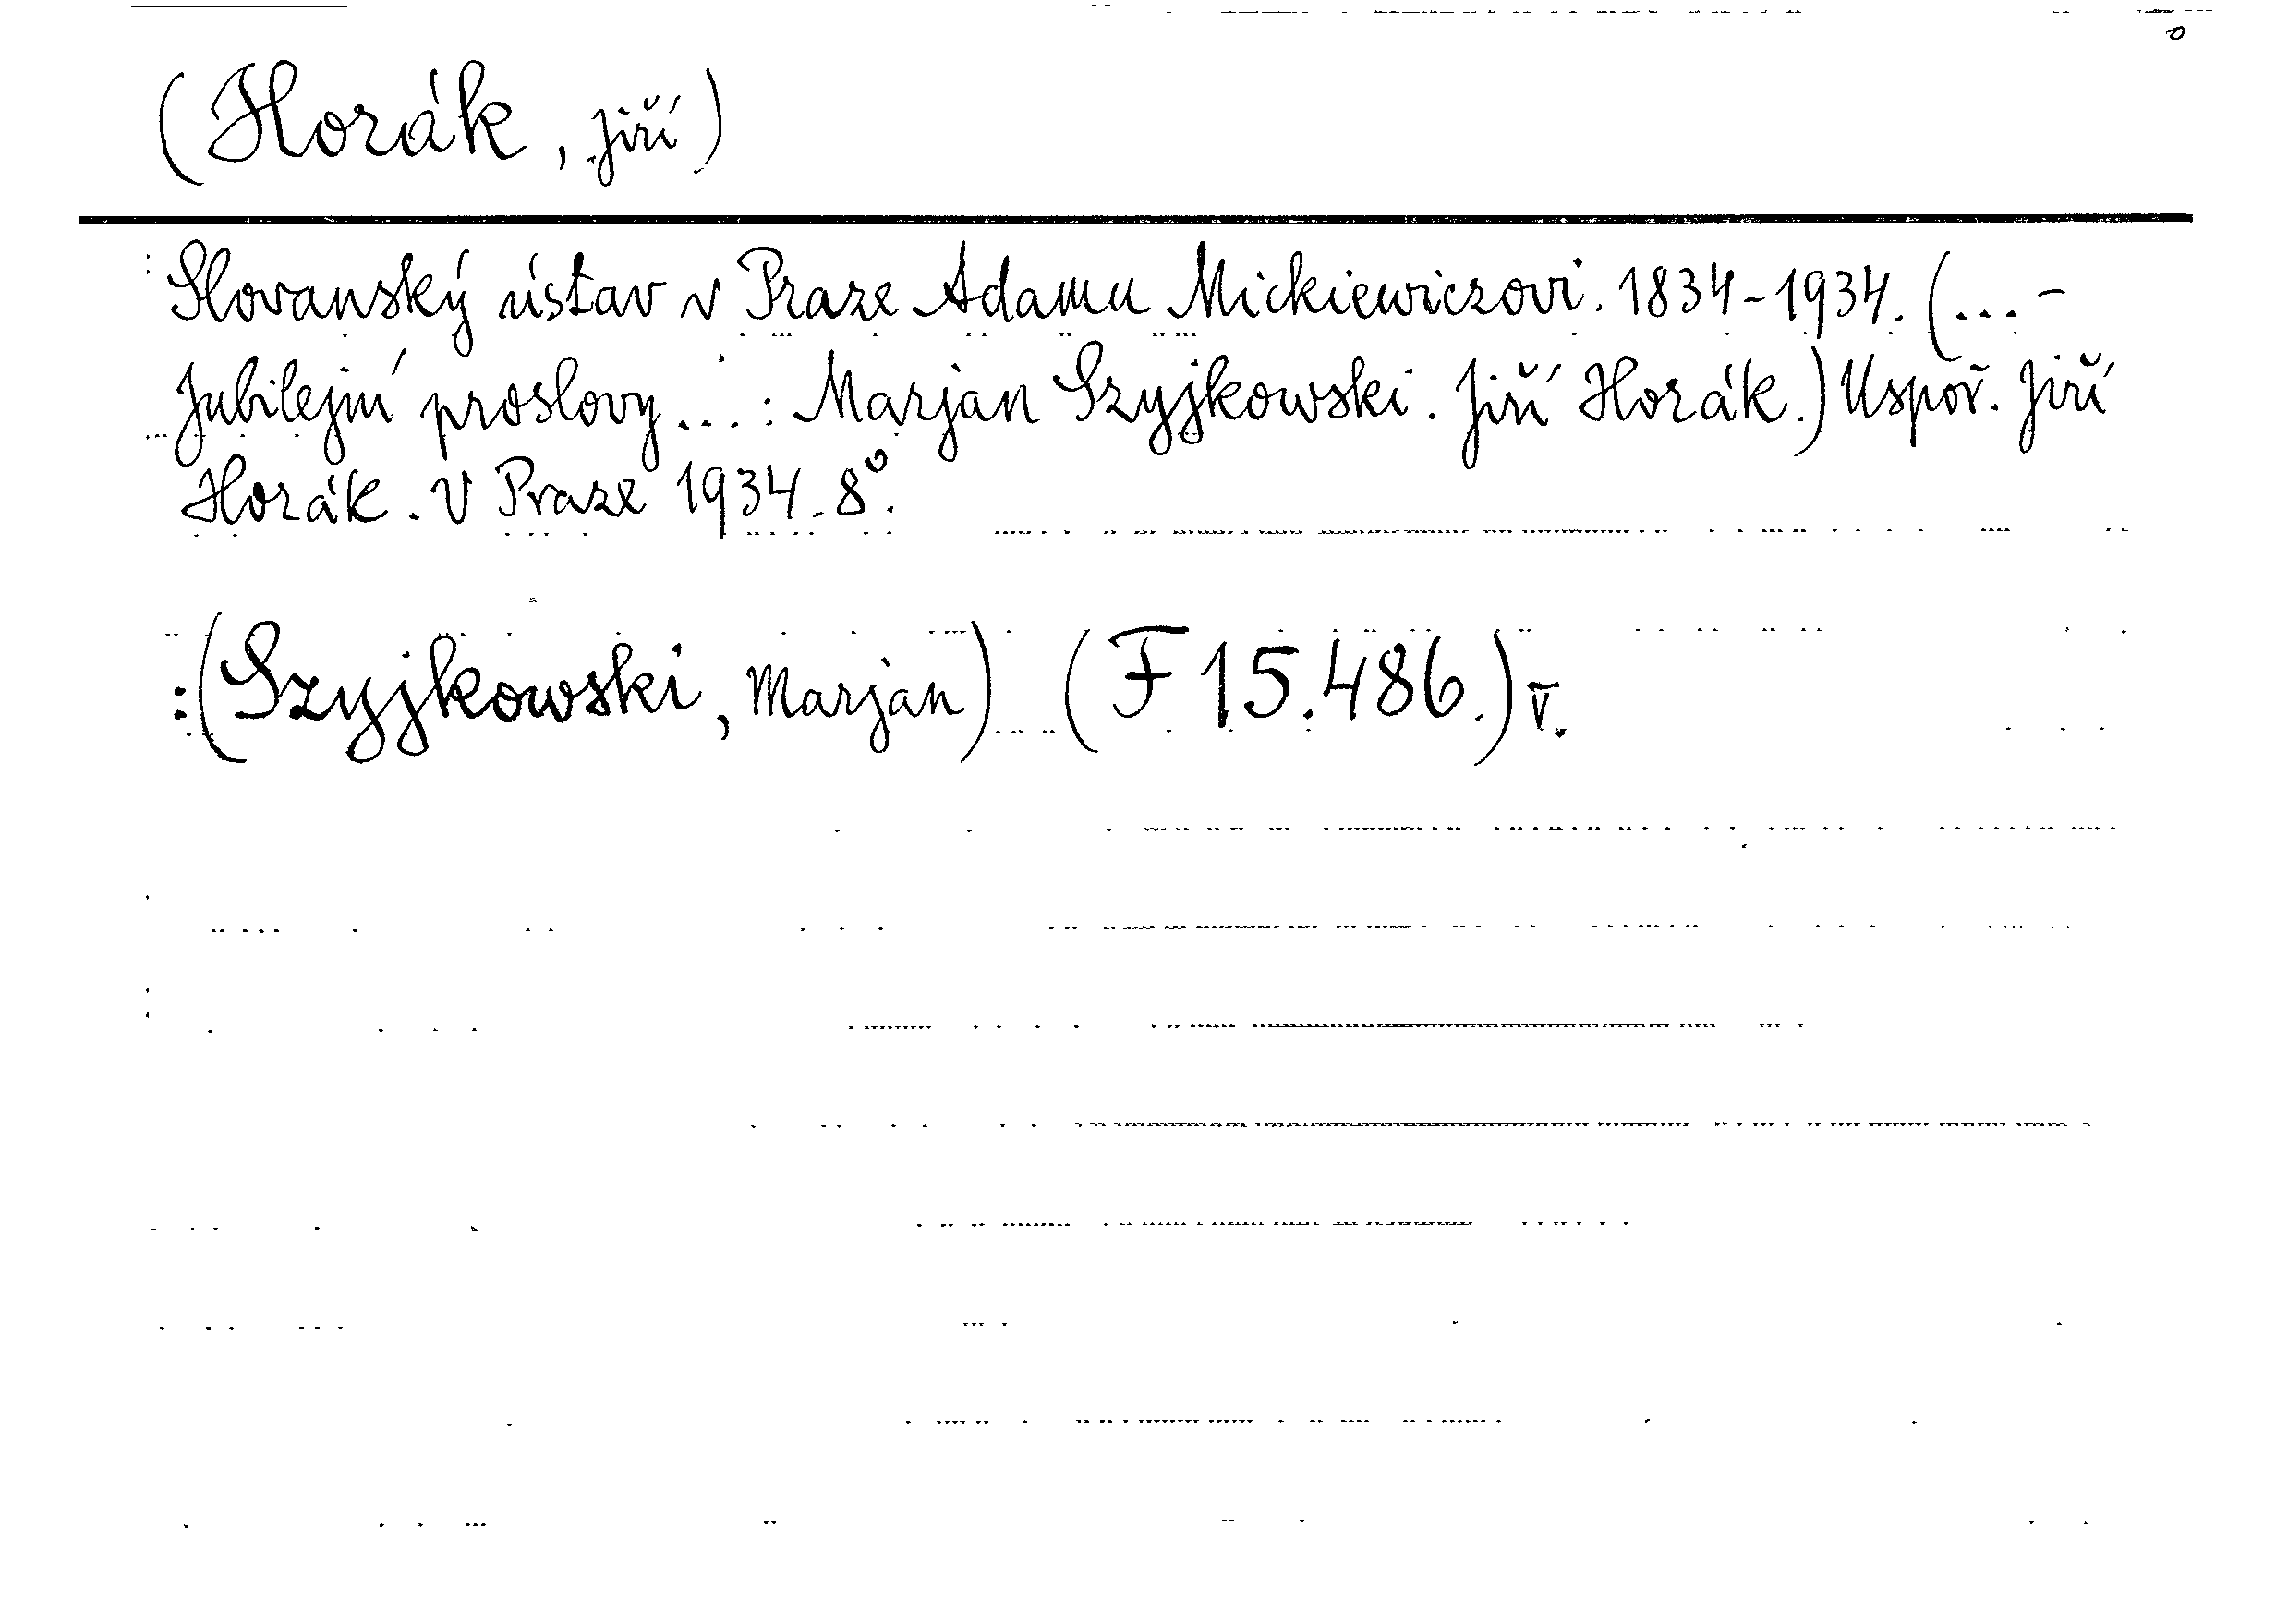 (Horák, Jiří)
Slovanský ústav v Praze Adamu Mickiewiczovi. 1834-1934. (... -
Jubilejní proslovy...: Marjan Szyjkowski. Jiří Horák.) Uspoř. Jiří
Horák. V Praze 1934. 8°.
:(Szyjkowski, Marjan) (F 15.486.) v.